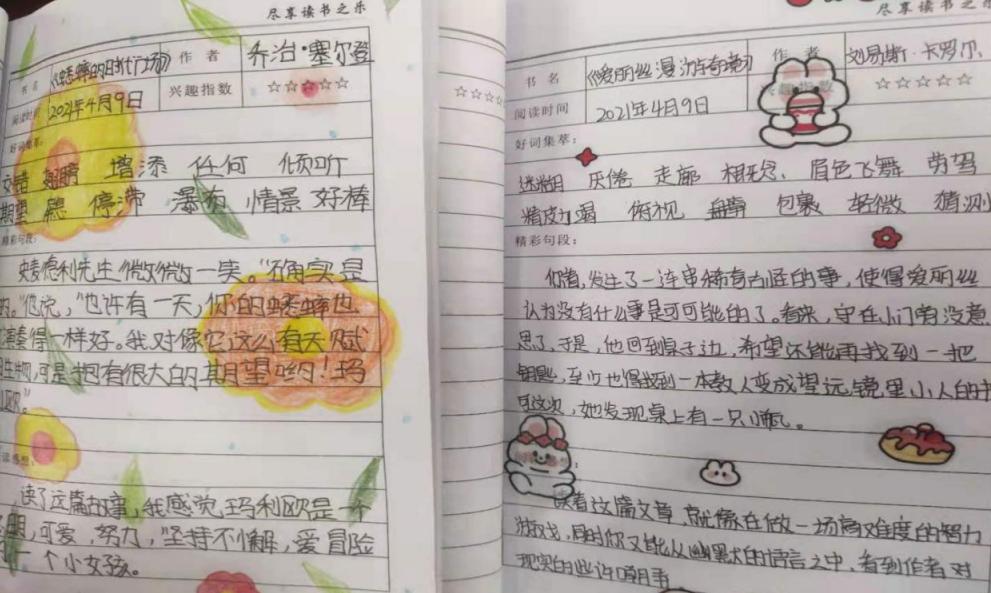 尽享读书之乐
书名 《蟋蟀的时代广场》 作者 乔治·塞尔登
阅读时间 2021年4月9日 兴趣指数 ☆☆☆☆☆
好词集萃:
交错 翅膀 增添 任何 倾听
期望 停滞 瀑布 情景 好棒
精彩句段:
史麦德利先生微微一笑。“不确实是
的。”他说，“也许有一天，你的蟋蟀也
演奏得一样好。我对像它这么有天赋
生物，可是抱有很大的期望哟！玛
利欧。”
读感想:
读了这篇故事，我感觉玛利欧是一个
可爱，努力，坚持不懈，爱冒险
一个小女孩。
☆☆☆
尽享读书之乐
书名 《爱丽丝漫游奇境》 作者 刘易斯·卡罗尔
阅读时间 2021年4月9日 兴趣指数 ☆☆☆☆☆
好词集萃:
迷糊 厌倦 走廊 相矛盾、 眉色飞舞 劳驾
精疲力竭 俯视 包裹 轻微 猜测
精彩句段:
你看，发生了一连串稀奇古怪的事，使得爱丽丝
认为没有什么事是可可能的了。看来，守在小门旁没意
思了，于是，他回到桌子边，希望还能再找到一把
钥匙，至少也得找到一本教人变成望远镜里小人的书
可这次，她发现桌上有一只小瓶。
读着这篇文章，就像在做一场高难度的智力
游戏，同时你又能从幽默的语言之中，看到作者对
现实的些许嘲讽